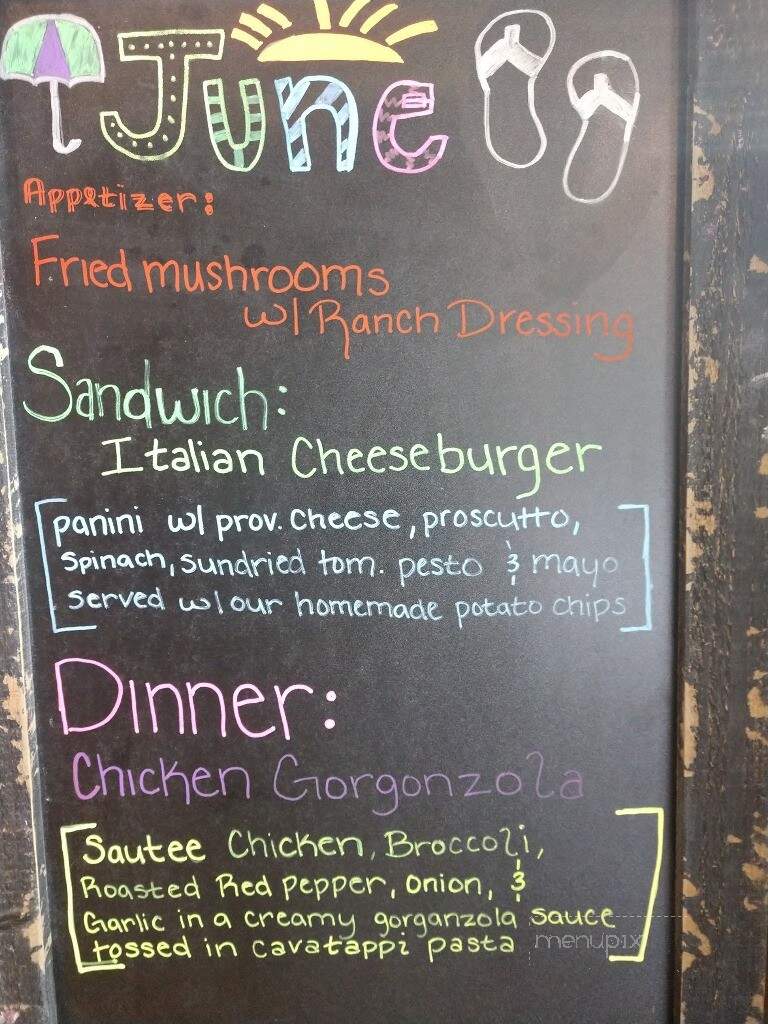 June
Appetizer:
Fried mushrooms
w/ Ranch Dressing
Sandwich:
Italian Cheeseburger
panini w/ prov. cheese, proscutto,
Spinach, sundried tom. pesto & mayo
served w/ our homemade potato chips
Dinner:
Chicken Gorgonzola
Sautee Chicken, Broccoli,
Roasted Red pepper, onion, &
Garlic in a creamy gorganzola sauce
tossed in cavatappi pasta
menupix